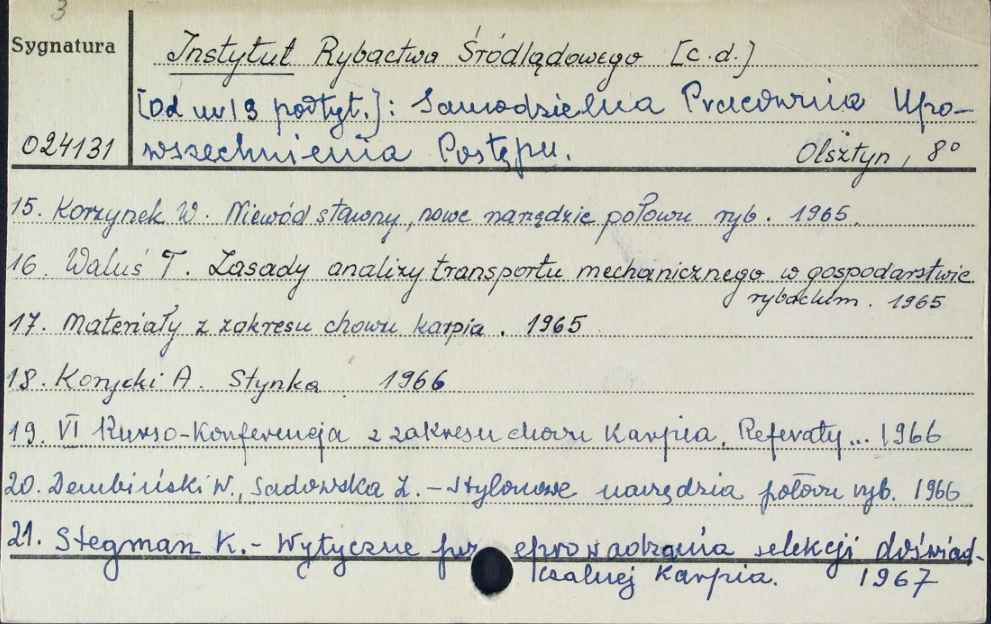 3
Sygnatura
Instytut Rybactwa Śródlądowego [c.d.]
[Od nr 19 podtyt.]: Samodzielna Pracownia Upo-
024131 wszechnienia Postępu. Olsztyn, 8°
15. Korzynek W. Niewód stawny, nowe narzędzie połowu ryb. 1965.
16. Waluś T. Zasady analizy transportu mechanicznego w gospodarstwie
rybackim. 1965
17. Materiały z zakresu chowu karpia. 1965
18. Korycki A. Stynka 1966
19. VI Kurso-Konferencja z zakresu chowu Karpia. Referaty... 1966
20. Dembiński W., Sadowska Z. - Stylonowe narzędzia połowu ryb. 1966
21. Stegman K. - Wytyczne prowadzania selekcji doświad-
czalnej Karpia. 1967